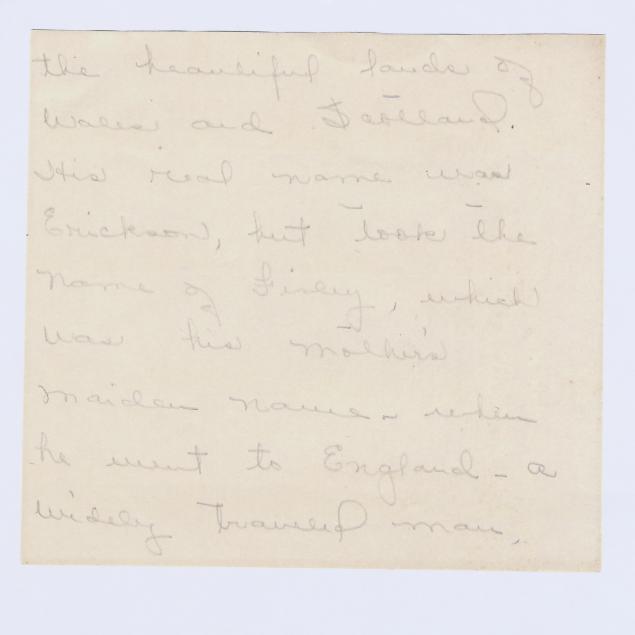 the beautiful lands of
Wales and Scotland.
His real name was
Erickson, but took the
name of Finley, which
was his mother's
maiden name - when
he went to England - a
widely traveled man.